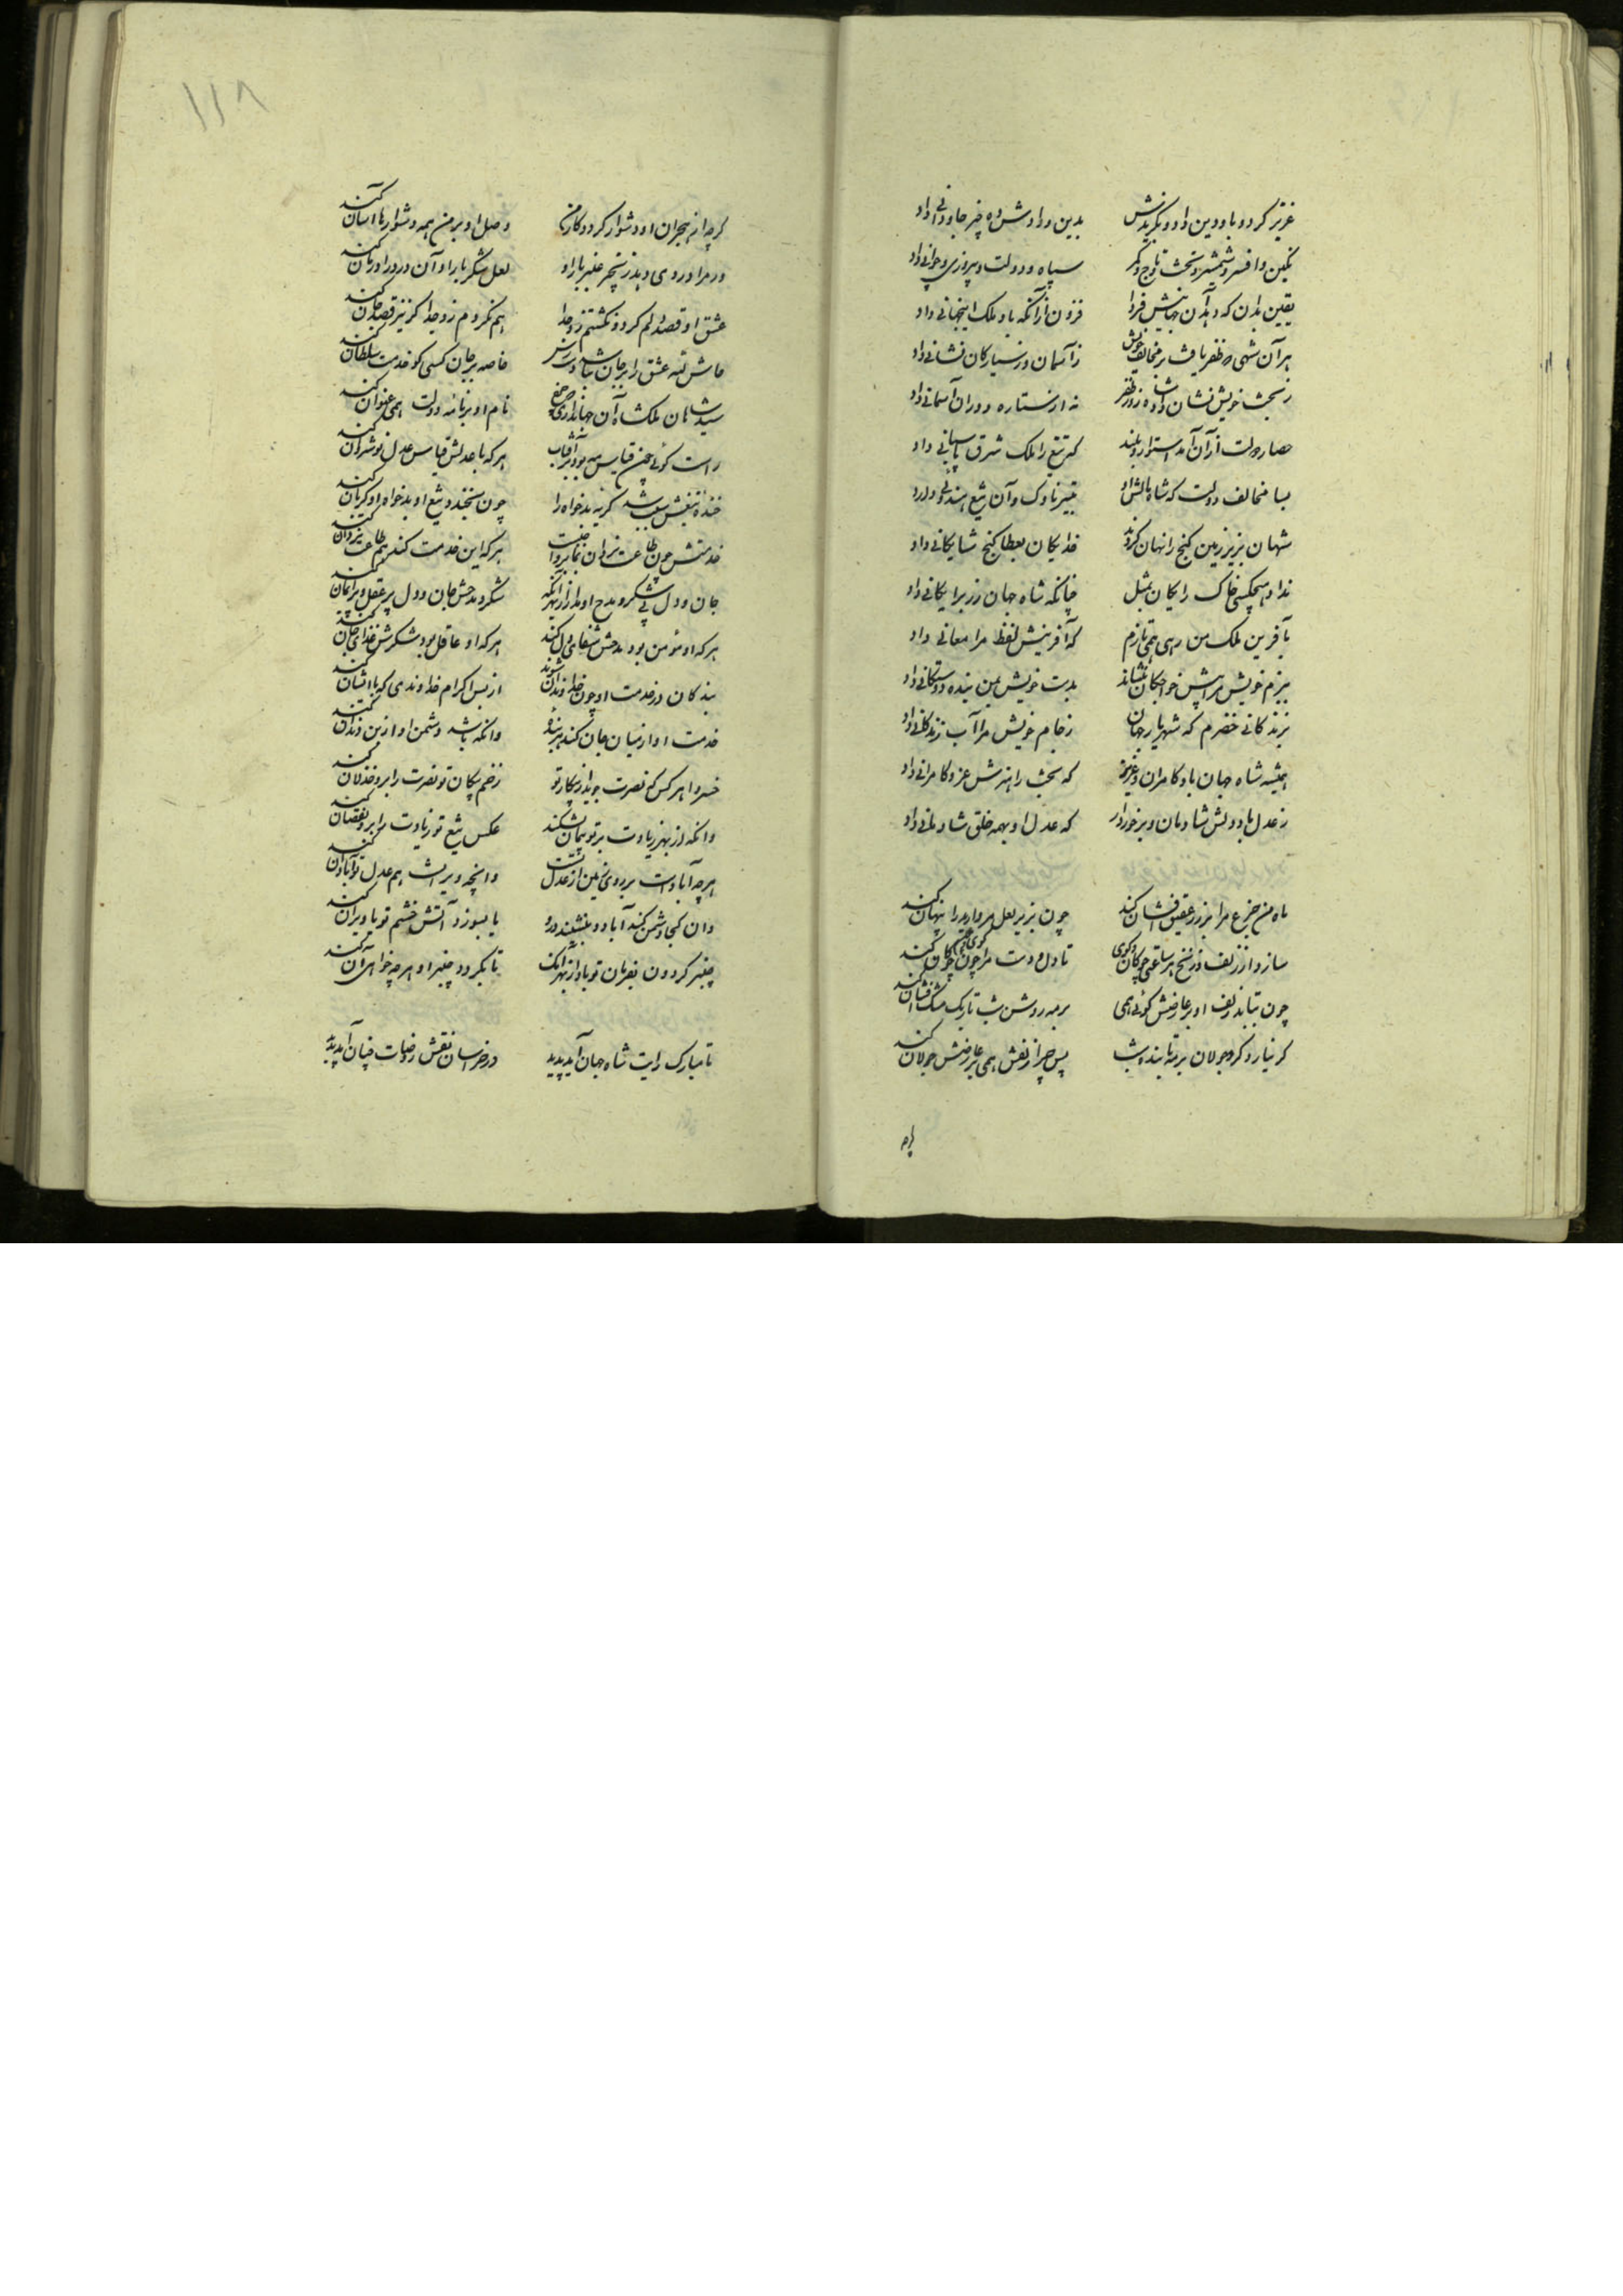 عزیز کرد و باو دین و داد و بکزیدش بدین و دادش و ده خیر جاودانی داد
نکین و افسر و شمشیر و تخت و تاج و کمر سپاه و دولت و پیروزی و جوانی داد
یقین بدان که دهد آن جهانیش فردا فزون از آنکه باو ملک اینجهانی داد
هر آن شهی که ظفر یافت بر مخالف خویش ز آسمان و ز سیارکان نشانی داد
ز بخت خویش نشان داد شاه روز ظفر نه از ستاره و دوران آسمانی داد
حصار دولت از آن آمد استوار و بلند که تیغ را ملک شرق پاسبانی داد
بسا مخالف دولت که شاه مالش داد بتیر ناوک و آن تیغ هندوانی داد
شهان بزیر زمین کنج را نهان کردند خدایکان بعطا کنج شایکانی داد
نداد هیچکسی خاک رایکان بمثل چنانکه شاه جهان زر برایکانی داد
بآفرین ملک من رهی همی نازم که آفرینش لفظ مرا معانی داد
ببزم خویش مرا پیش خواجکان بنشاند بدست خویش بمن بنده دوستکانی داد
بزندکانی خضرم که شهریار جهان ز جام خویش مرا آب زندکانی داد
همیشه شاه جهان باد کامران و عزیز که بخت را هنرش عز و کامرانی داد
ز عدل باد دلش شادمان و برخوردار که عدل او بهمه خلق شادمانی داد
ماه من جزع مرا بر زر عقیق افشان کند چون بزیر لعل مروارید را پنهان کند
سازد از زلف و زنخ هر ساعتی چوکان و کوی تا دل و پشت مرا چون کوی و چون چوکان کند
چون بتابد زلف او بر عارضش کوئی همی بر مه روشن شب تاریک مشک افشان کند
کر نیارد کرد جولان بر مه تابنده شب پس چرا زلفش همی بر عارضش جولان کند
کرچه
۱۱۸
کرچه از هجران او دشوار کردد کار من وصل او بر من همه دشوارها آسان کند
ور مرا درد دهد زنجیر عنبر بار او لعل شکر بار او آن درد را درمان کند
عشق او قصد دلم کرد و نکشتم زو جدا هم نکردم زو جدا کر نیز قصد جان کند
خاصه بر جان کسی کو خدمت سلطان کند
سید شاهان ملکشاه آن جهانداری که چرخ نام او بر نامه دولت همی عنوان کند
راست کوئی چون قیاس مه بود بر آفتاب هر که با عدلش قیاس عدل نوشروان کند
خنده تیغش سبب شد کریه بدخواه را چون بخندد تیغ او بدخواه او کریان کند
خدمتش چون طاعت یزدان بما بر واجبست هر که این خدمت کند هم طاعت یزدان کند
جان و دل بی شکر و مدح او مدار از بهر آنکه شکر و مدحش جان و دل پر عقل و پر ایمان کند
هر که او مومن بود مدحش شفای دل کند هر که او عاقل بود شکرش غذای جان کند
بندکان در خدمت او چون خداوندان شوند از بس اکرام خداوندی که با ایشان کند
خدمت او از میان جان کند هر بنده وانکه باشد دشمن او از بن دندان کند
خسروا هر کس که نصرت جوید از پیکار تو زخم پیکان تو نصرت را برو خذلان کند
وانکه از بهر زیادت بر تو پیمان بشکند عکس تیغ تو زیادت را برو نقصان کند
هر چه آبادست بر روی زمین از عدل تست وانچه ویرانست هم عدل تو آبادان کند
وان کجا دشمن کند آباد و بنشیند درو یا بسوزد آتش خشم تو یا ویران کند
چنبر کردون بفرمان تو باد از بهر آنک تا بکردد چنبر او هر چه خواهی آن کند
تا مبارک رایت شاه جهان آید پدید در خراسان نقش روضات جنان آید پدید